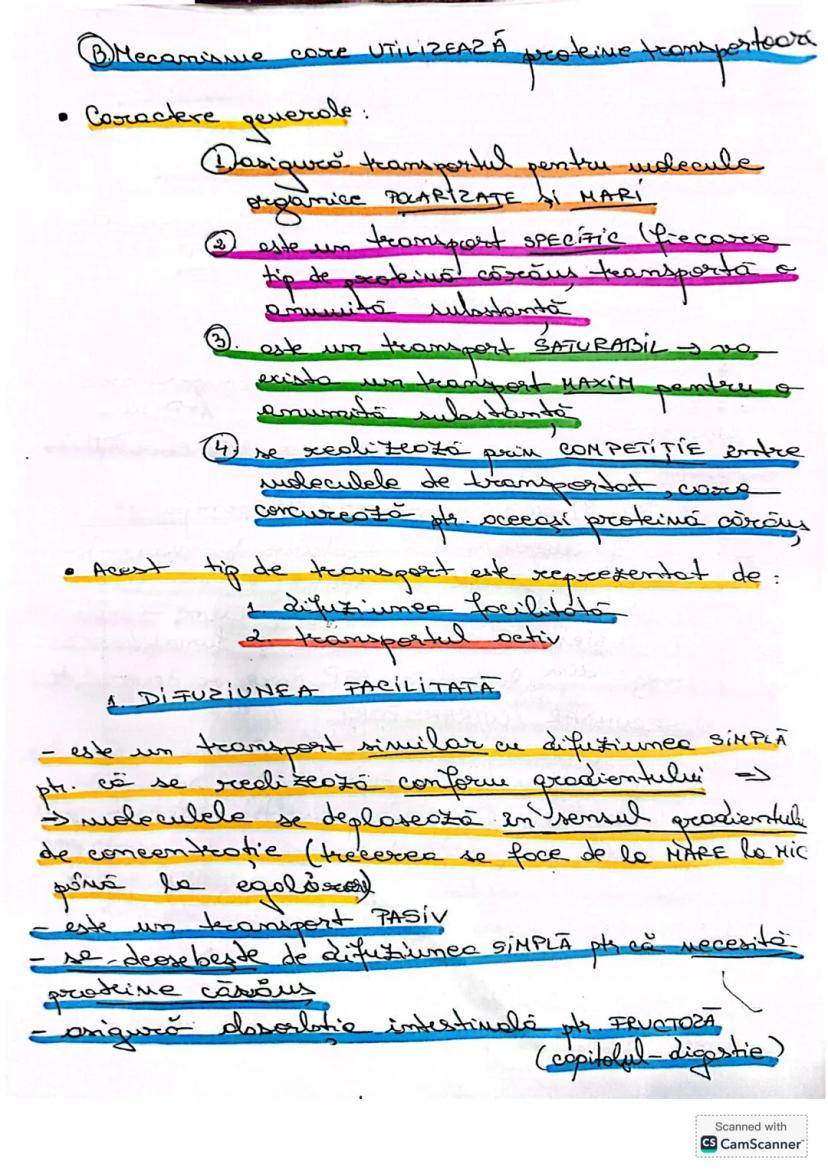 B. Mecanisme care UTILIZEAZĂ proteine transportoare
• Caractere generale:
① asigură transportul pentru molecule
organice POLARIZATE și MARI
② este un transport SPECIFIC (fiecare
tip de proteină cărăuș transportă o
anumită substanță
③. este un transport SATURABIL → va
exista un transport MAXIM pentru o
anumită substanță
④ se realizează prin COMPETIȚIE între
moleculele de transportat, care
concurează ptr. aceeași proteină cărăuș
• Acest tip de transport este reprezentat de:
1. difuziunea facilitată
2. transportul activ
1. DIFUZIUNEA FACILITATĂ
- este un transport similar cu difuziunea SIMPLĂ
ptr. că se realizează conform gradientului ⇒
→ moleculele se deplasează în sensul gradientului
de concentrație (trecerea se face de la MARE la MIC
până la egalizare)
- este un transport PASIV
- se deosebește de difuziunea SIMPLĂ ptr că necesită
proteine cărăuș
- asigură absorbția intestinală ptr. FRUCTOZĂ
(capitolul-digestie)
Scanned with
CS CamScanner